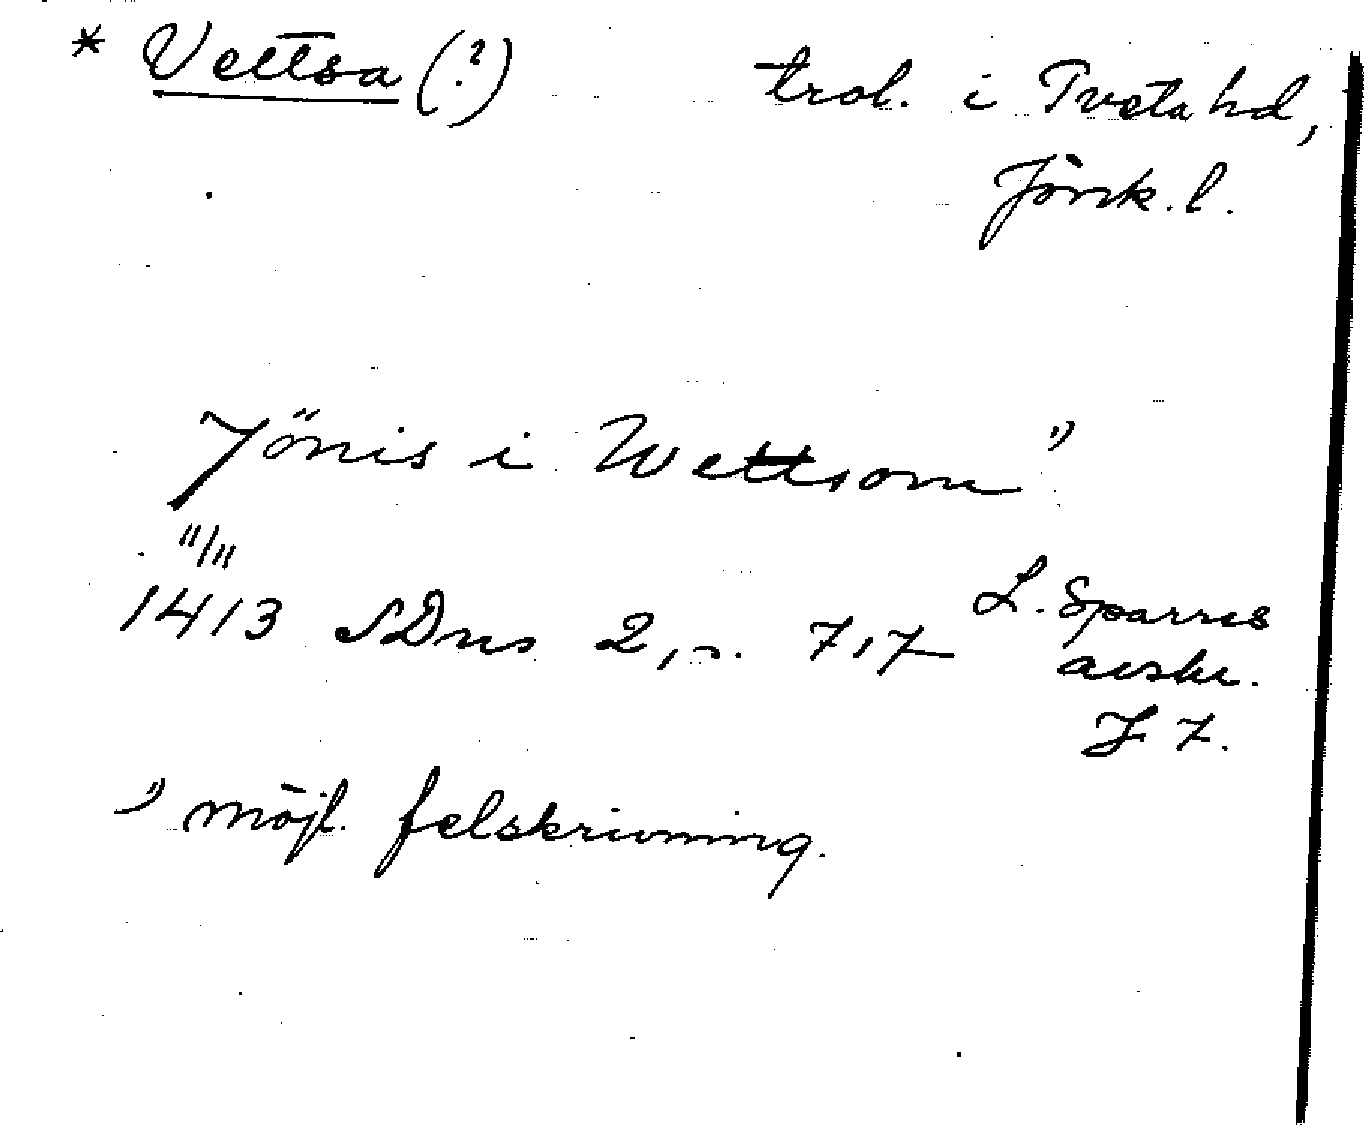 * Vettsa (?) trol. i Tveta hd,
Jönk. l.
Jönis i Wettsom ¹⁾
11/11
1413 SDns 2, s. 717 L. Sparres
avskr.
F 7.
¹⁾ möjl. felskrivning.